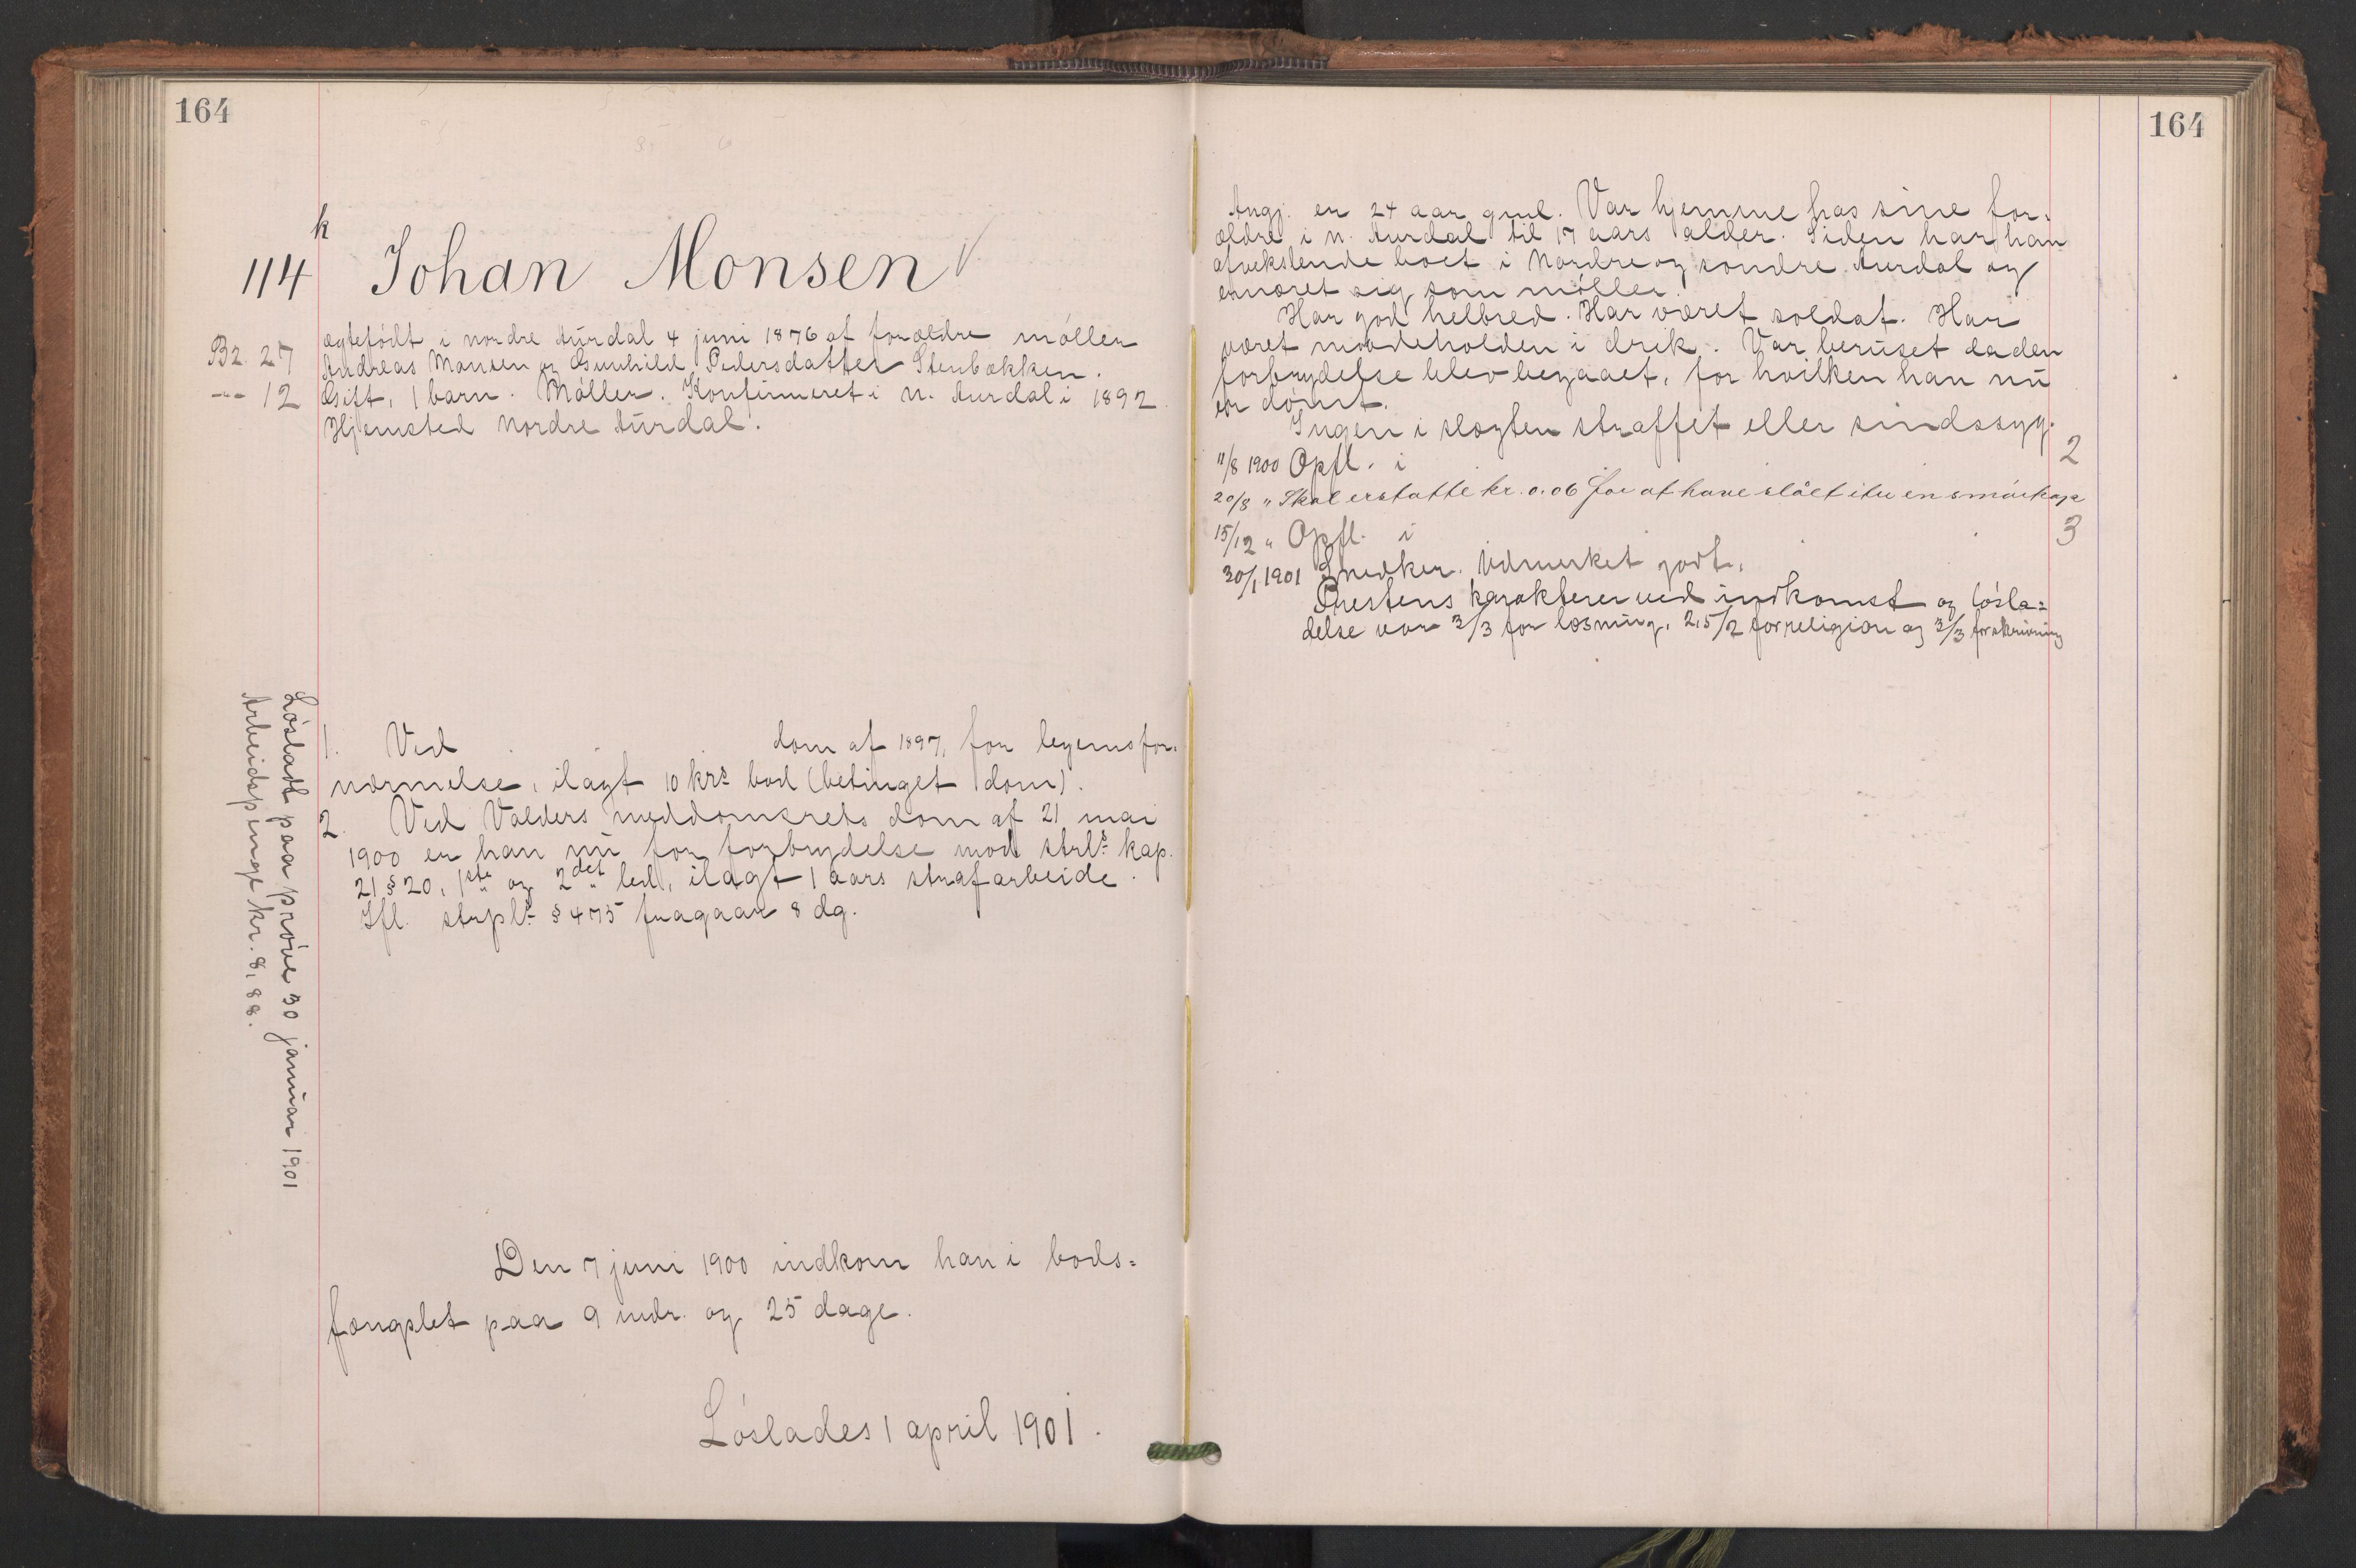 164
k
114 Johan Monsen
B2. 27
-"- 12
ægtefødt i nordre Aurdal 4 juni 1876 af forældre møller
Andreas Monsen og Gunhild Pedersdatter Stenbækken.
Gift, 1 barn. Møller. Konfirmeret i N. Aurdal i 1892.
Hjemsted Nordre Aurdal.
Løsladt paa prøve 30 januar 1901
Arbeidspenge kr. 8,88.
1. Ved dom af 1897, for legemsfor-
nærmelse, ilagt 10 krs bod (betinget dom).
2. Ved Valders meddomsrets dom af 21 mai
1900 er han nu for forbrydelse mod strls kap.
21 § 20, 1ste og 2det led, ilagt 1 aars strafarbeide.
Ifl. strpl. § 475 fragaar 8 dg.
Den 7 juni 1900 indkom han i bods=
fængslet paa 9 mdr. og 25 dage.
Løslades 1 april 1901.
164
Angj. er 24 aar gml. Var hjemme hos sine for-
ældre i N. Aurdal til 17 aars alder. Siden har han
afvekslende boet i Nordre og søndre Aurdal og
ernæret sig som møller.
Har god helbred. Har været soldat. Har
været maadeholden i drik. Var beruset da den
forbrydelse blev begaaet, for hvilken han nu
er dømt.
Ingen i slægten straffet eller sindssyg.
11/8 1900 Opfl. i 2
20/8 " Skal erstatte kr. 0.06 for at have slået itu en smørkop
15/12 " Opfl. i 3
30/1 1901 Snedker. Udmerket godt.
Prestens karakterer ved indkomst og løsla=
delse var 3/3 for læsning, 2,5/2 for religion og 3/3 for skrivning